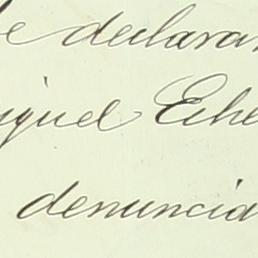 e declaran
iguel Eche
denuncia